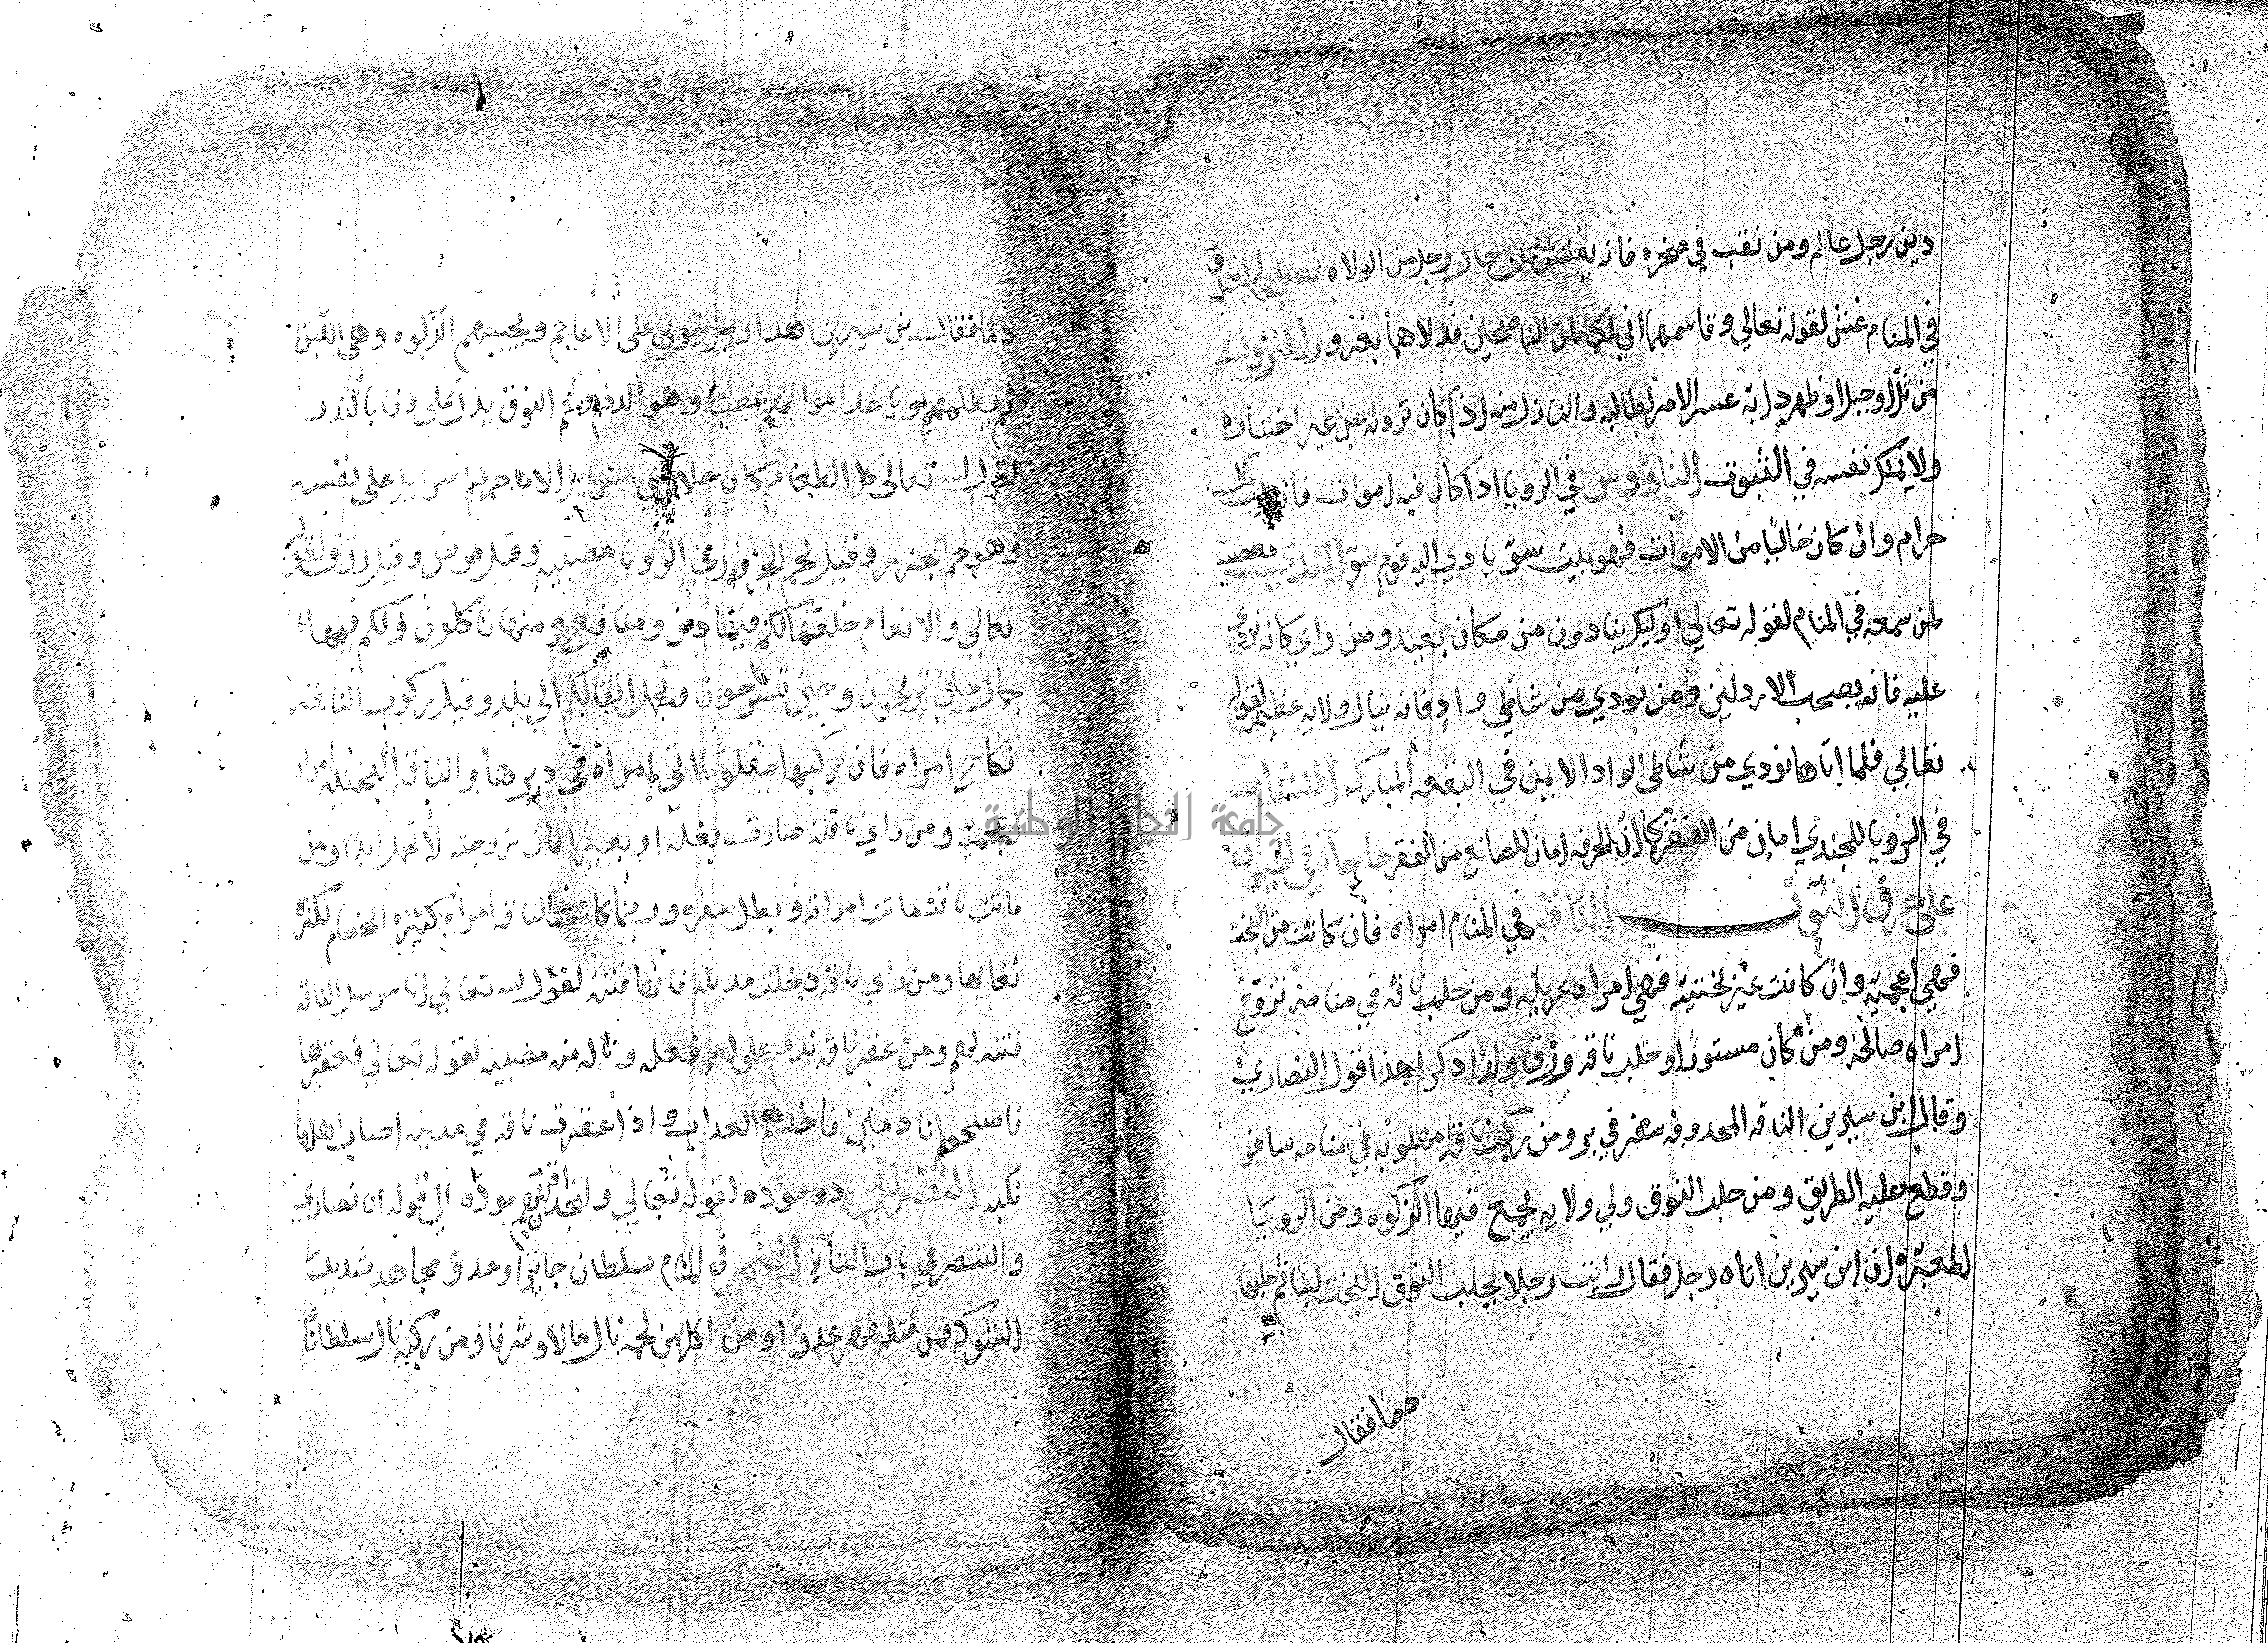 دين رجل عالم ومن نقب في صخره فانه يفتش عن حال رجل من الولاه
في المنام غش لقوله تعالي وقاسمهما اني لكما لمن الناصحين فدلاهما بغرور النزول
من تل او جبل او ظهر دابه عسر الامر لطالبه والنازل منه اذا كان نزوله عن غير اختياره
ولا يملك نفسه في الثبوت الناؤوس في الرويا اذا كان فيه اموات فانه بيت مال
حرام وان كان خاليا من الاموات فهو بيت سو ياوي اليه قوم سو الندي معصيه
لمن سمعه في المنام لقوله تعالي اوليك ينادون من مكان بعيد ومن راي كانه نودي
عليه فانه يصحب الاردلين ومن نودي من شاطي واد فانه ينال ولايه عظيمه لقوله
تعالي فلما اتاها نودي من شاطي الواد الايمن في البقعه المباركه النشاب
في الرويا للجندي امان من الفقر كما ان الحرفه امان للصانع من الفقر ما جآء في الحيوان
على حرف النون الناقه في المنام امراه فان كانت من البخت
فهي اعجميه وان كانت غير بختيه فهي امراه عربيه ومن حلب ناقه في منامه تزوج
امراه صالحه ومن كان مستورا وحلب ناقه ورزق ولدا دكرا هذا قول النصاري
وقال ابن سيرين الناقه المحدوفه سفر في بر ومن ركب ناقه مهلوبه في منامه سافر
وقطع عليه الطريق ومن حلب النوق ولي ولايه يجمع فيها الزكوه ومن الرويا
المعتبره ان ابن سيرين اتاه رجل فقال رايت رجلا يحلب النوق البخت لبنا ثم حلبها
دما فقال
دما فقال بن سيرين هدا رجل يتولي على الاعاجم ويجيبهم الزكوه وهي اللبن
ثم يظلمهم وياخد اموالهم غصبا وهو الدم ولحم النوق يدل على وفا بالندر
لقول الله تعالى كل الطعام كان حلا لبني اسرايل الا ما حرم اسرايل على نفسه
وهو لحم الجزور وقيل لحم الجزور في الرويا مصيبه وقيل مرض وقيل رزق لقوله
تعالي والانعام خلقها لكم فيها دف ومنافع ومنها تاكلون ولكم فيها
جمال حين تريحون وحين تسرحون وتحمل اثقالكم الي بلد وقيل ركوب الناقه
نكاح امراه فان ركبها مقلوبا اتي امراه في دبرها والناقه البختيه امراه
اعجميه ومن راي ناقته صارت بغله او بعيرا فان زوجته لا تحمل ابدا ومن
ماتت ناقته ماتت امراته وبطل سفره وربما كانت الناقه امراه كثيره الخصام لكثره
رغايها ومن راي ناقه دخلت مدينه فانها فتنه لقول الله تعالي انا مرسلو الناقه
فتنه لهم ومن عقر ناقه ندم على امر فعله وناله منه مصيبه لقوله تعالي فعقروها
فاصبحوا نادمين فاخدهم العداب واذا عقرت ناقه في مدينه اصاب اهلها
نكبه النصراني دو موده لقوله تعالي ولتجدن اقربهم موده الي قوله انا نصاري
والتنصر في باب التآء النمر في المنام سلطان جاير او عدو مجاهد شديد
الشوكه فمن قتله قهر عدوا ومن اكل من لحمه نال مالا وشرفا ومن ركبه نال سلطانا
جامعة النجاح الوطنية